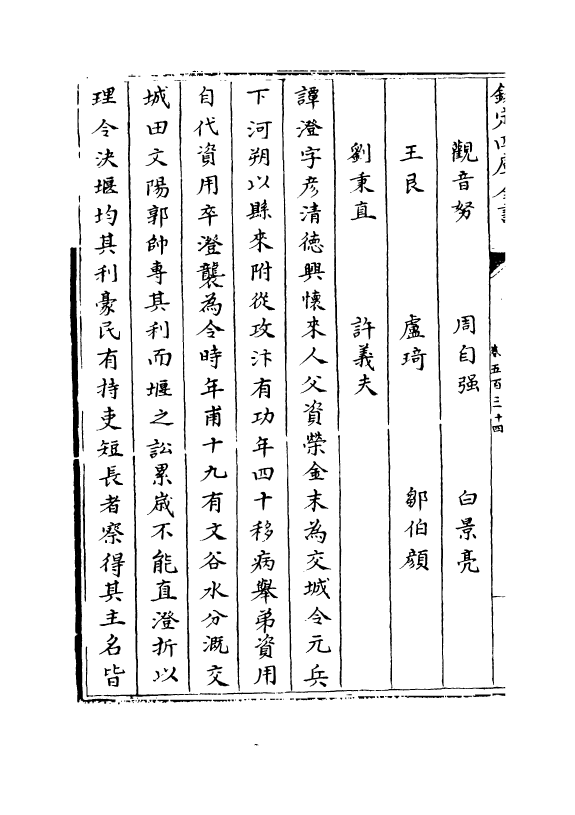 欽定四庫全書
卷五百三十四
觀音努　周自强　白景亮
王艮　盧琦　鄒伯顔
劉秉直　許義夫
譚澄字彦清德興懷來人父資榮金末為交城令元兵
下河朔以縣來附從攻汴有功年四十移病舉弟資用
自代資用卒澄襲為令時年甫十九有文谷水分溉交
城田文陽郭帥専其利而堰之訟累嵗不能直澄折以
理令決堰均其利豪民有持吏短長者察得其主名皆